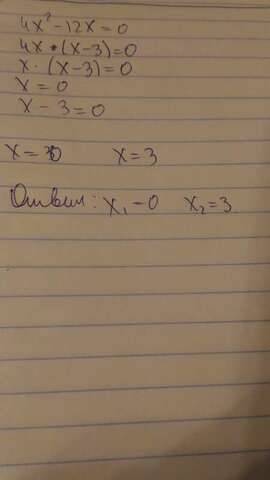 4x² - 12x = 0
4x • (x - 3) = 0
x · (x - 3) = 0
x = 0
x - 3 = 0
x = 0 x = 3
Ответ: x₁ - 0 x₂ = 3